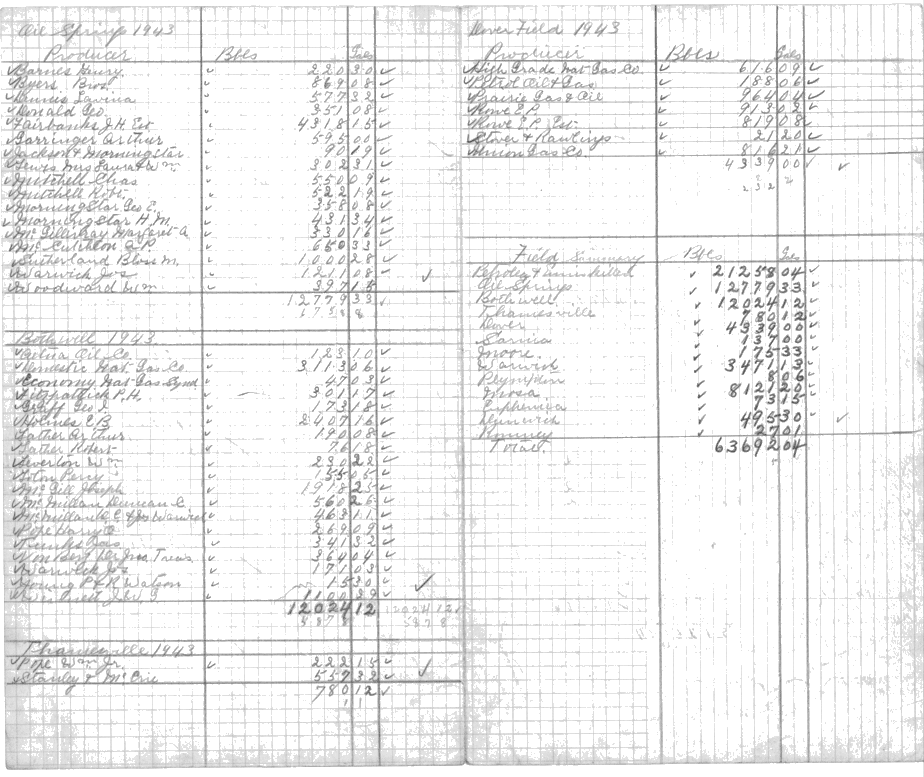 Oil Springs 1943
Producer Bbls Gals
Barnes Henry 22030
Byers Bros. 86908
Dennis Lavina 57732
Donald Geo 35108
Fairbanks J.H. Est 431815
Barringer Arthur 59500
Jackson & Morningstar 9019
Lewis Mrs Laura & Wm. 30231
Mitchell Chas 55009
Mitchell R.H. 52219
Morningstar Geo E. 35808
Morningstar H.M. 43134
McGillivray Margaret A 33016
McCutcheon A P. 65033
Sutherland Bloss M. 100028
Warwick Jos 121108
Woodward Wm 39715
1277933
Bothwell 1943
Aetna Oil Co. 12310
Domestic Nat. Gas Co. 311306
Economy Nat Gas Synd 4703
Fitzpatrick P.H. 30117
Graff Geo 17318
Holmes E B 240716
Lather Arthur 19008
Lather Robert 7618
Leverton Wm. 23022
Percy 5505
McGill Joseph 191825
McMillan Duncan C. 56026
46311
Pope Harry 26909
34132
Treas. 36404
Warwick Jos 17103
Young P & R Watson 1530
110029
1202412
Thamesville 1943
Pope Wm Jr. 22215
Stanley & McCrie 55732
78012
Dover Field 1943
Producer Bbls Gals
High Grade Nat Gas Co. 61609
Petrol Oil & Gas 18806
Prairie Gas & Oil 96404
Rowe E P. 91302
Rowe E P. Est. 81908
Stover & Rawlings 2120
Union Gas Co. 81621
433900
Field Summary Bbls Gals
Petrolea & Enniskillen 2125804
Oil Springs 1277933
Bothwell 1202412
Thamesville 78012
Dover 433900
Sarnia 13700
Moore 17533
Warwick 347113
Plympton 806
Mosa 812120
Euphemia 7315
Dunwich 49530
Romney 2701
Total. 6369204